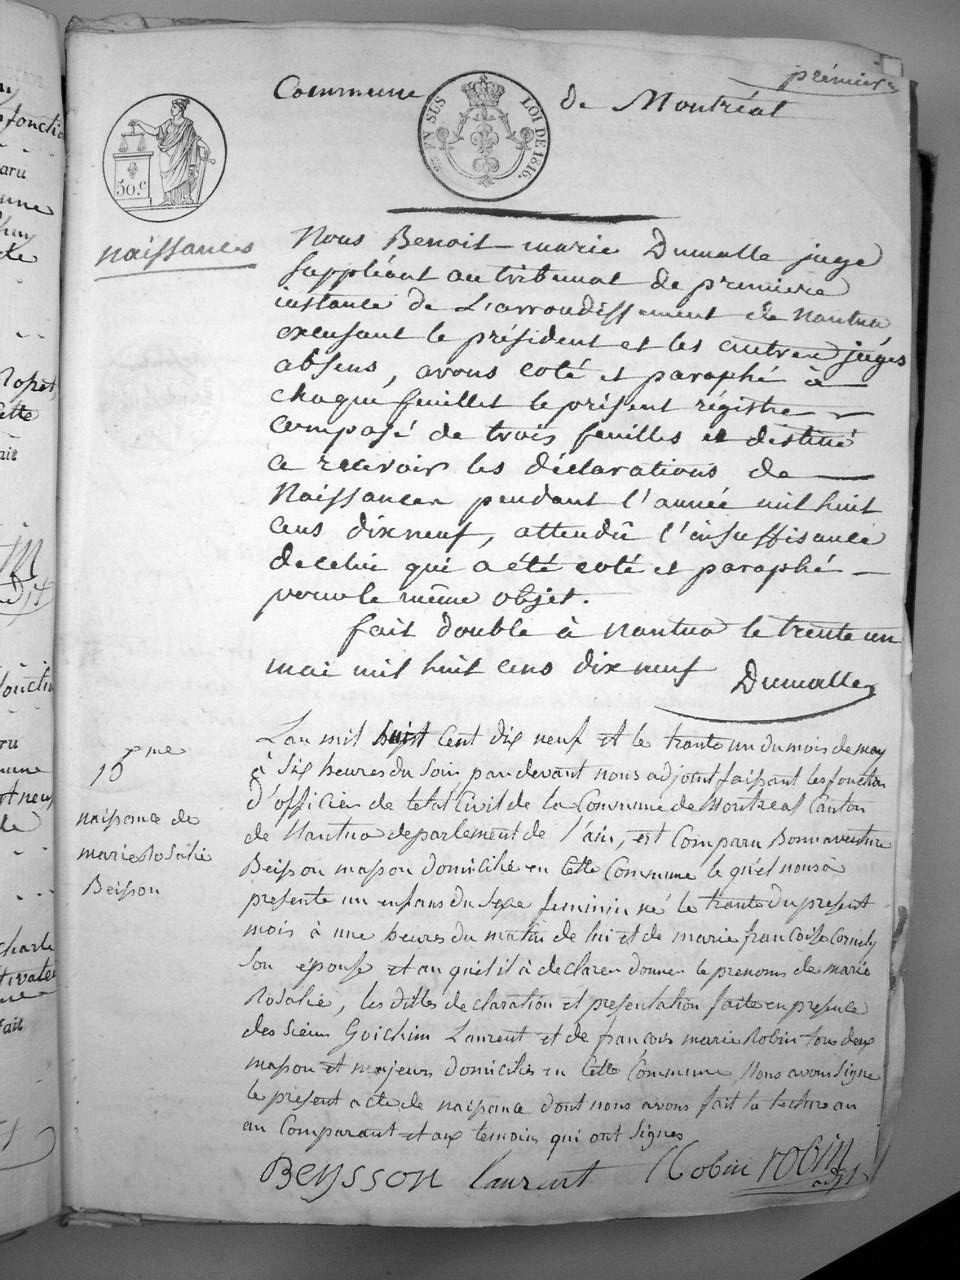 première
Commune de Montréal
EN SUS LOI DE 1816.
50.c
naissances
Nous Benoit-marie Dumalle juge
suppléant au tribunal de première
instance de L'arrondissement de Nantua
excusant le président et les autres juges
absens, avons coté et paraphé à
chaque feuillet le présent régistre
composé de trois feuilles et destiné
a recevoir les déclarations de
Naissances pendant l'année mil huit
cens dix neuf, attendû l'insuffisance
de celui qui a été coté et paraphé
pour le même objet.
fait double à Nantua le trente un
mai mil huit cens dix neuf Dumalle
15me
naissance de
marie Rosalie
Beisson
L'an mil huit Cent dix neuf et le trante un du mois de may
à six heures du soir pardevant nous adjoint faissant les fonction
D'officier de tetat Civil de la Commune de Montreal Canton
de Nantua departement de l'ain, est Comparu Bonnaventure
Beisson masson domicilié en Cette Commune le quel nous à
presenté un enfans du sexe feminin né le trante du present
mois à une heures du matin de lui et de marie francoise
son épouse et au quel il à declarer donner le prenoms de marie
Rosalie, les dittes declaration et presentation faite en presence
des sieur Goichim Laurent et de francois marie Robin tous deux
masson et majeurs domicilies en Cette Commune Nous avons signe
le présent acte de naissance dont nous avons fait la lecture au
au Comparant et aux temoins qui ont signes
BEYSSON laurent Robin robin
adjt